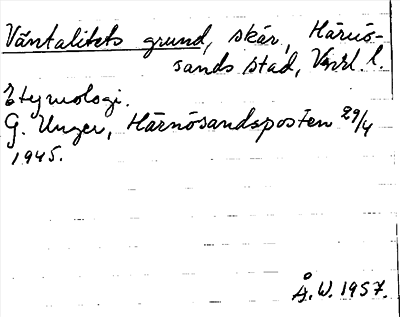 Väntalitets grund, skär, Härnö-
sands stad, Vnrl. l.
Etymologi.
G. Unger, Härnösandsposten 29/4
1945.
Å.W. 1957.